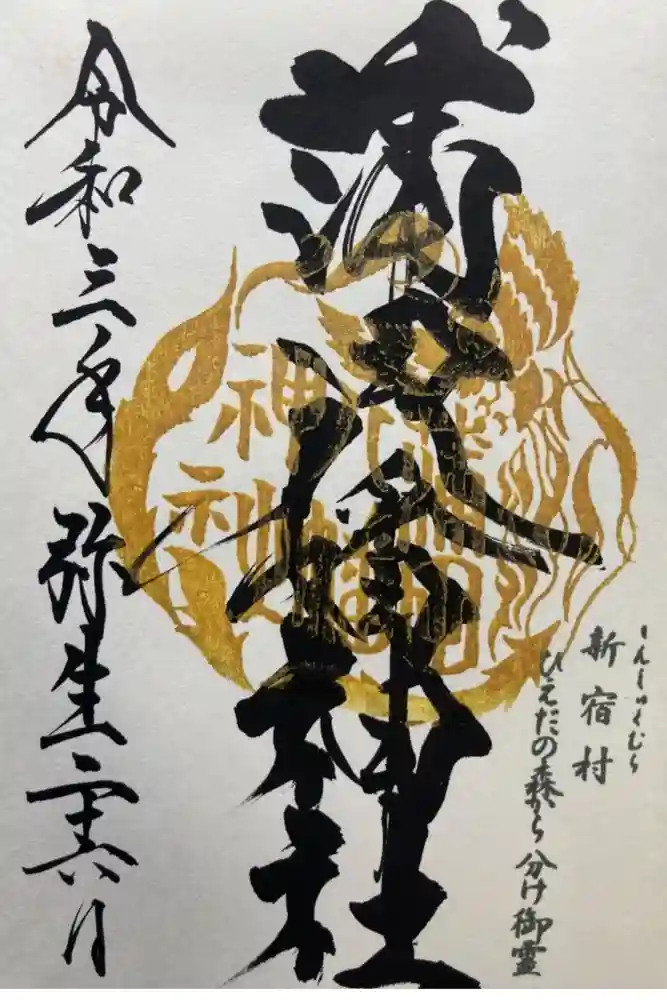 しんしゅくむら
新宿村
ひえだの森から分け御霊
蒲田八幡神社
神社
令和三年弥生二十六日